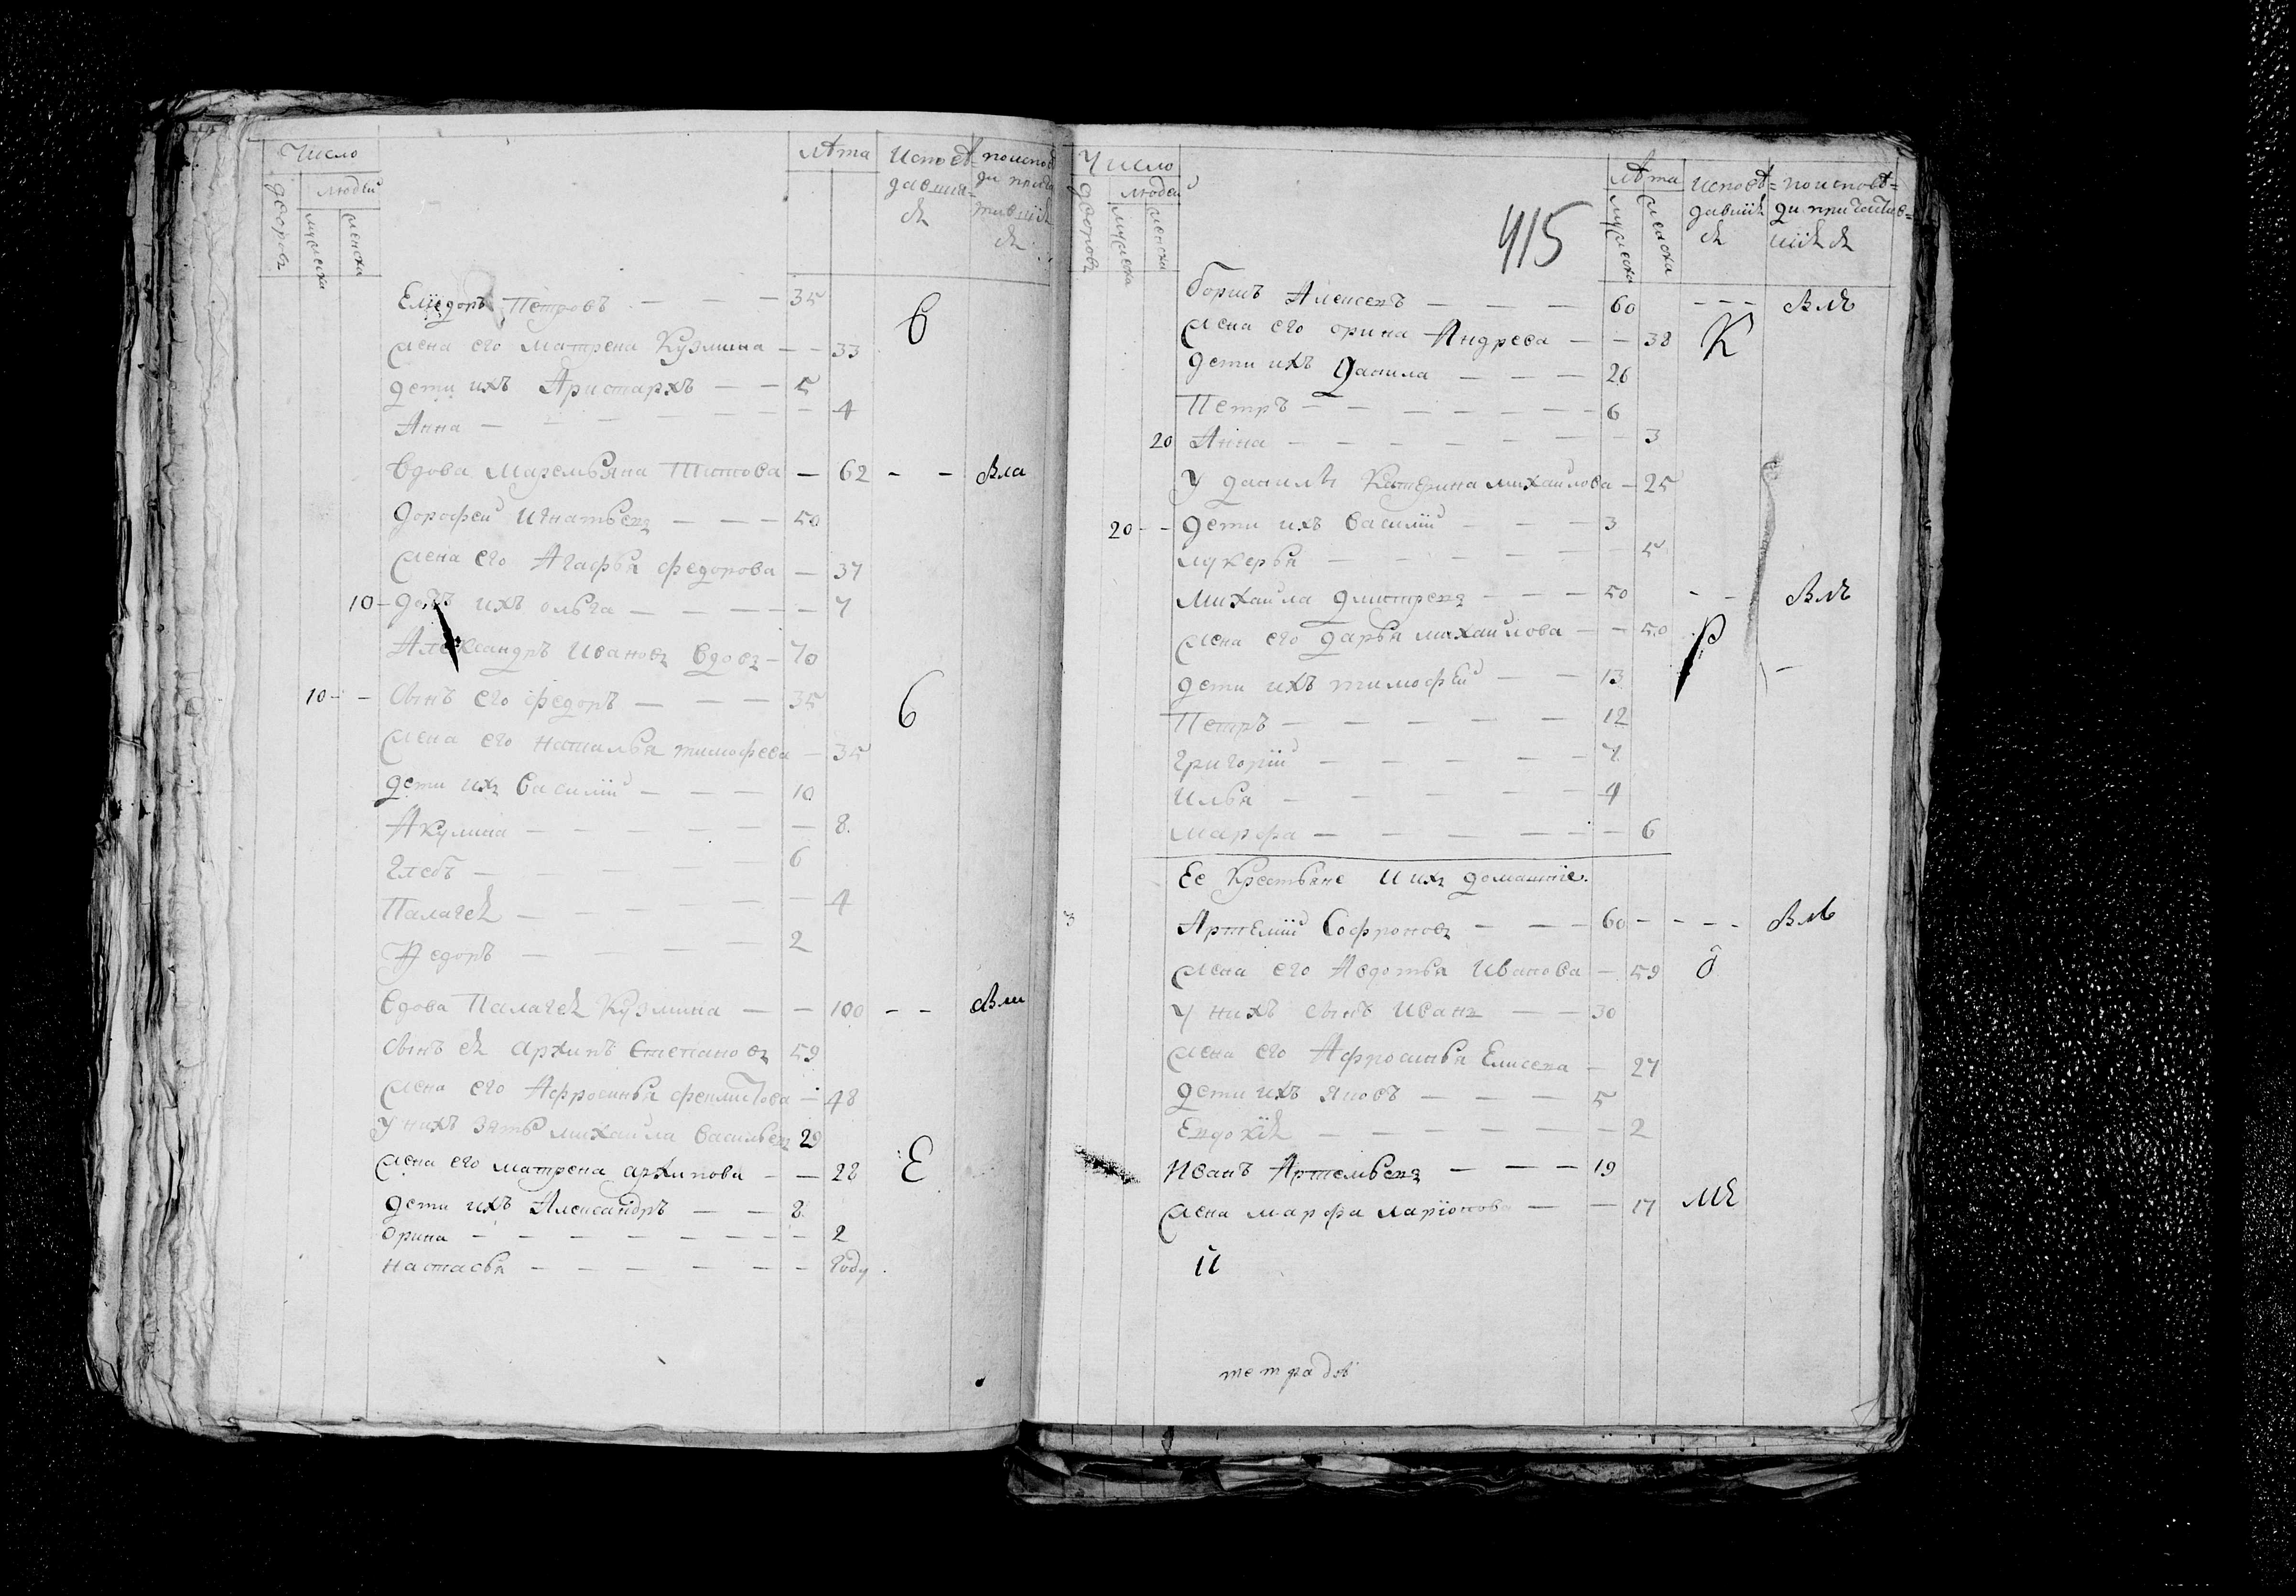 Число
людей
дворовъ
мужеска
женска
лѣта
исповѣ-
давших
ся
поиспов
ди прича
тивших
ся
Елиѳдоръ Петровъ — — — 35
жена его матрена Кузмина — — 33
дети ихъ Аристархъ — — 5
Анна — — — — — — 4
вдова Маремьяна Титова — 62 - - Вла
дорофеи Игнатьевъ — — — 50
жена его Агафья федорова — 37
10 - дочь ихъ ольга — — — — 7
Александръ Ивановъ вдовъ — 70
10 - - сынъ его федоръ — — — 35
жена его наталья тимофеева — 35
дети ихъ василій — — — 10
Акулина — — — — — — 8
Глебъ — — — — — 6
Палагея — — — — — 4
Федоръ — — — — 2
вдова Палагея Кузмина — — 100 - - Вли
сынъ ея архипъ степановъ 59
жена его Афросинья феклистова — 48
У нихъ зять михаила васильевъ 29
жена его матрена архипова — — 28
дети ихъ Александръ — — 8
орина — — — — — — — 2
настасья — — — — — — году
в
б
Е
Число
людей
дворовъ
мужеска
женска
415
лѣта
мужеска
женска
исповѣ=
давших
ся
поисповѣ=
ди причастив=
ших ся
борисъ Алексеевъ — — — 60 - - - Влъ
жена его орина Андреева — — 38 К
дети ихъ данила — — — 26
Петръ — — — — — — — 6
20 Анна — — — — — — — 3
у данилы Катерина михаилова — 25
20 - - дети ихъ василій — — — 3
лукерья — — — — — — 5
михаила дмитревъ — — — 50 - - Влъ
жена его дарья михаилова — — 50 р
дети ихъ тимофей — — 13
Петръ — — — — — 12
григорій — — — — — 7
илья — — — — — 4
марфа — — — — — — 6
Ее крестьяне и ихъ домашніе.
3 Артемій Софроновъ — — — 60 - - - Влъ
жена его Авдотья Иванова — 59 о
у нихъ сынъ Иванъ — — 30
жена его Афросинья Елисеева — 27
дети ихъ яковъ — — — 5
Евдокія — — — — — — 2
Иванъ Артемьевъ — — — 19
жена марфа ларіонова — — 17 МЕ
и
тетрадь